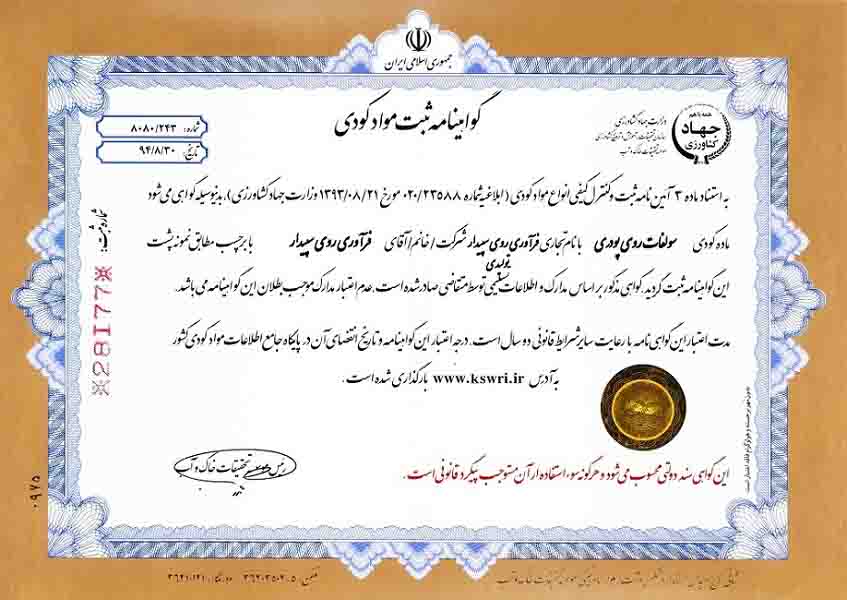 جمهوری اسلامی ایران
گواهینامه ثبت مواد کودی
شماره: ۸۰۸۰/۲۴۳
تاریخ: ۹۴/۸/۳۰
همه با هم
جهاد
کشاورزی
وزارت جهاد کشاورزی
سازمان تحقیقات، آموزش و ترویج کشاورزی
موسسه تحقیقات خاک و آب
به استناد ماده ۳ آئین نامه ثبت و کنترل کیفی انواع مواد کودی (ابلاغیه شماره ۰۲۰/۲۳۵۸۸ مورخ ۱۳۹۳/۰۸/۲۱ وزارت جهاد کشاورزی)، بدینوسیله گواهی می شود
ماده کودی سولفات روی پودری با نام تجاری فرآوری روی سپیدار شرکت / خانم / آقای تولیدی فرآوری روی سپیدار با برچسب مطابق نمونه پشت
این گواهینامه ثبت گردید. گواهی مذکور بر اساس مدارک و اطلاعات تسلیمی توسط متقاضی صادر شده است. عدم اعتبار مدارک موجب بطلان این گواهینامه می باشد.
مدت اعتبار این گواهی نامه با رعایت سایر شرایط قانونی دو سال است. درجه اعتبار این گواهینامه و تاریخ انقضای آن در پایگاه جامع اطلاعات مواد کودی کشور
به آدرس www.kswri.ir بارگذاری شده است.
شماره ثبت:
※28177※
رئیس موسسه تحقیقات خاک و آب
این گواهی سند دولتی محسوب می شود و هرگونه سوء استفاده از آن مستوجب پیگرد قانونی است.
بدون مهر برجسته و هولوگرام فاقد اعتبار است.
۰۹۷۵